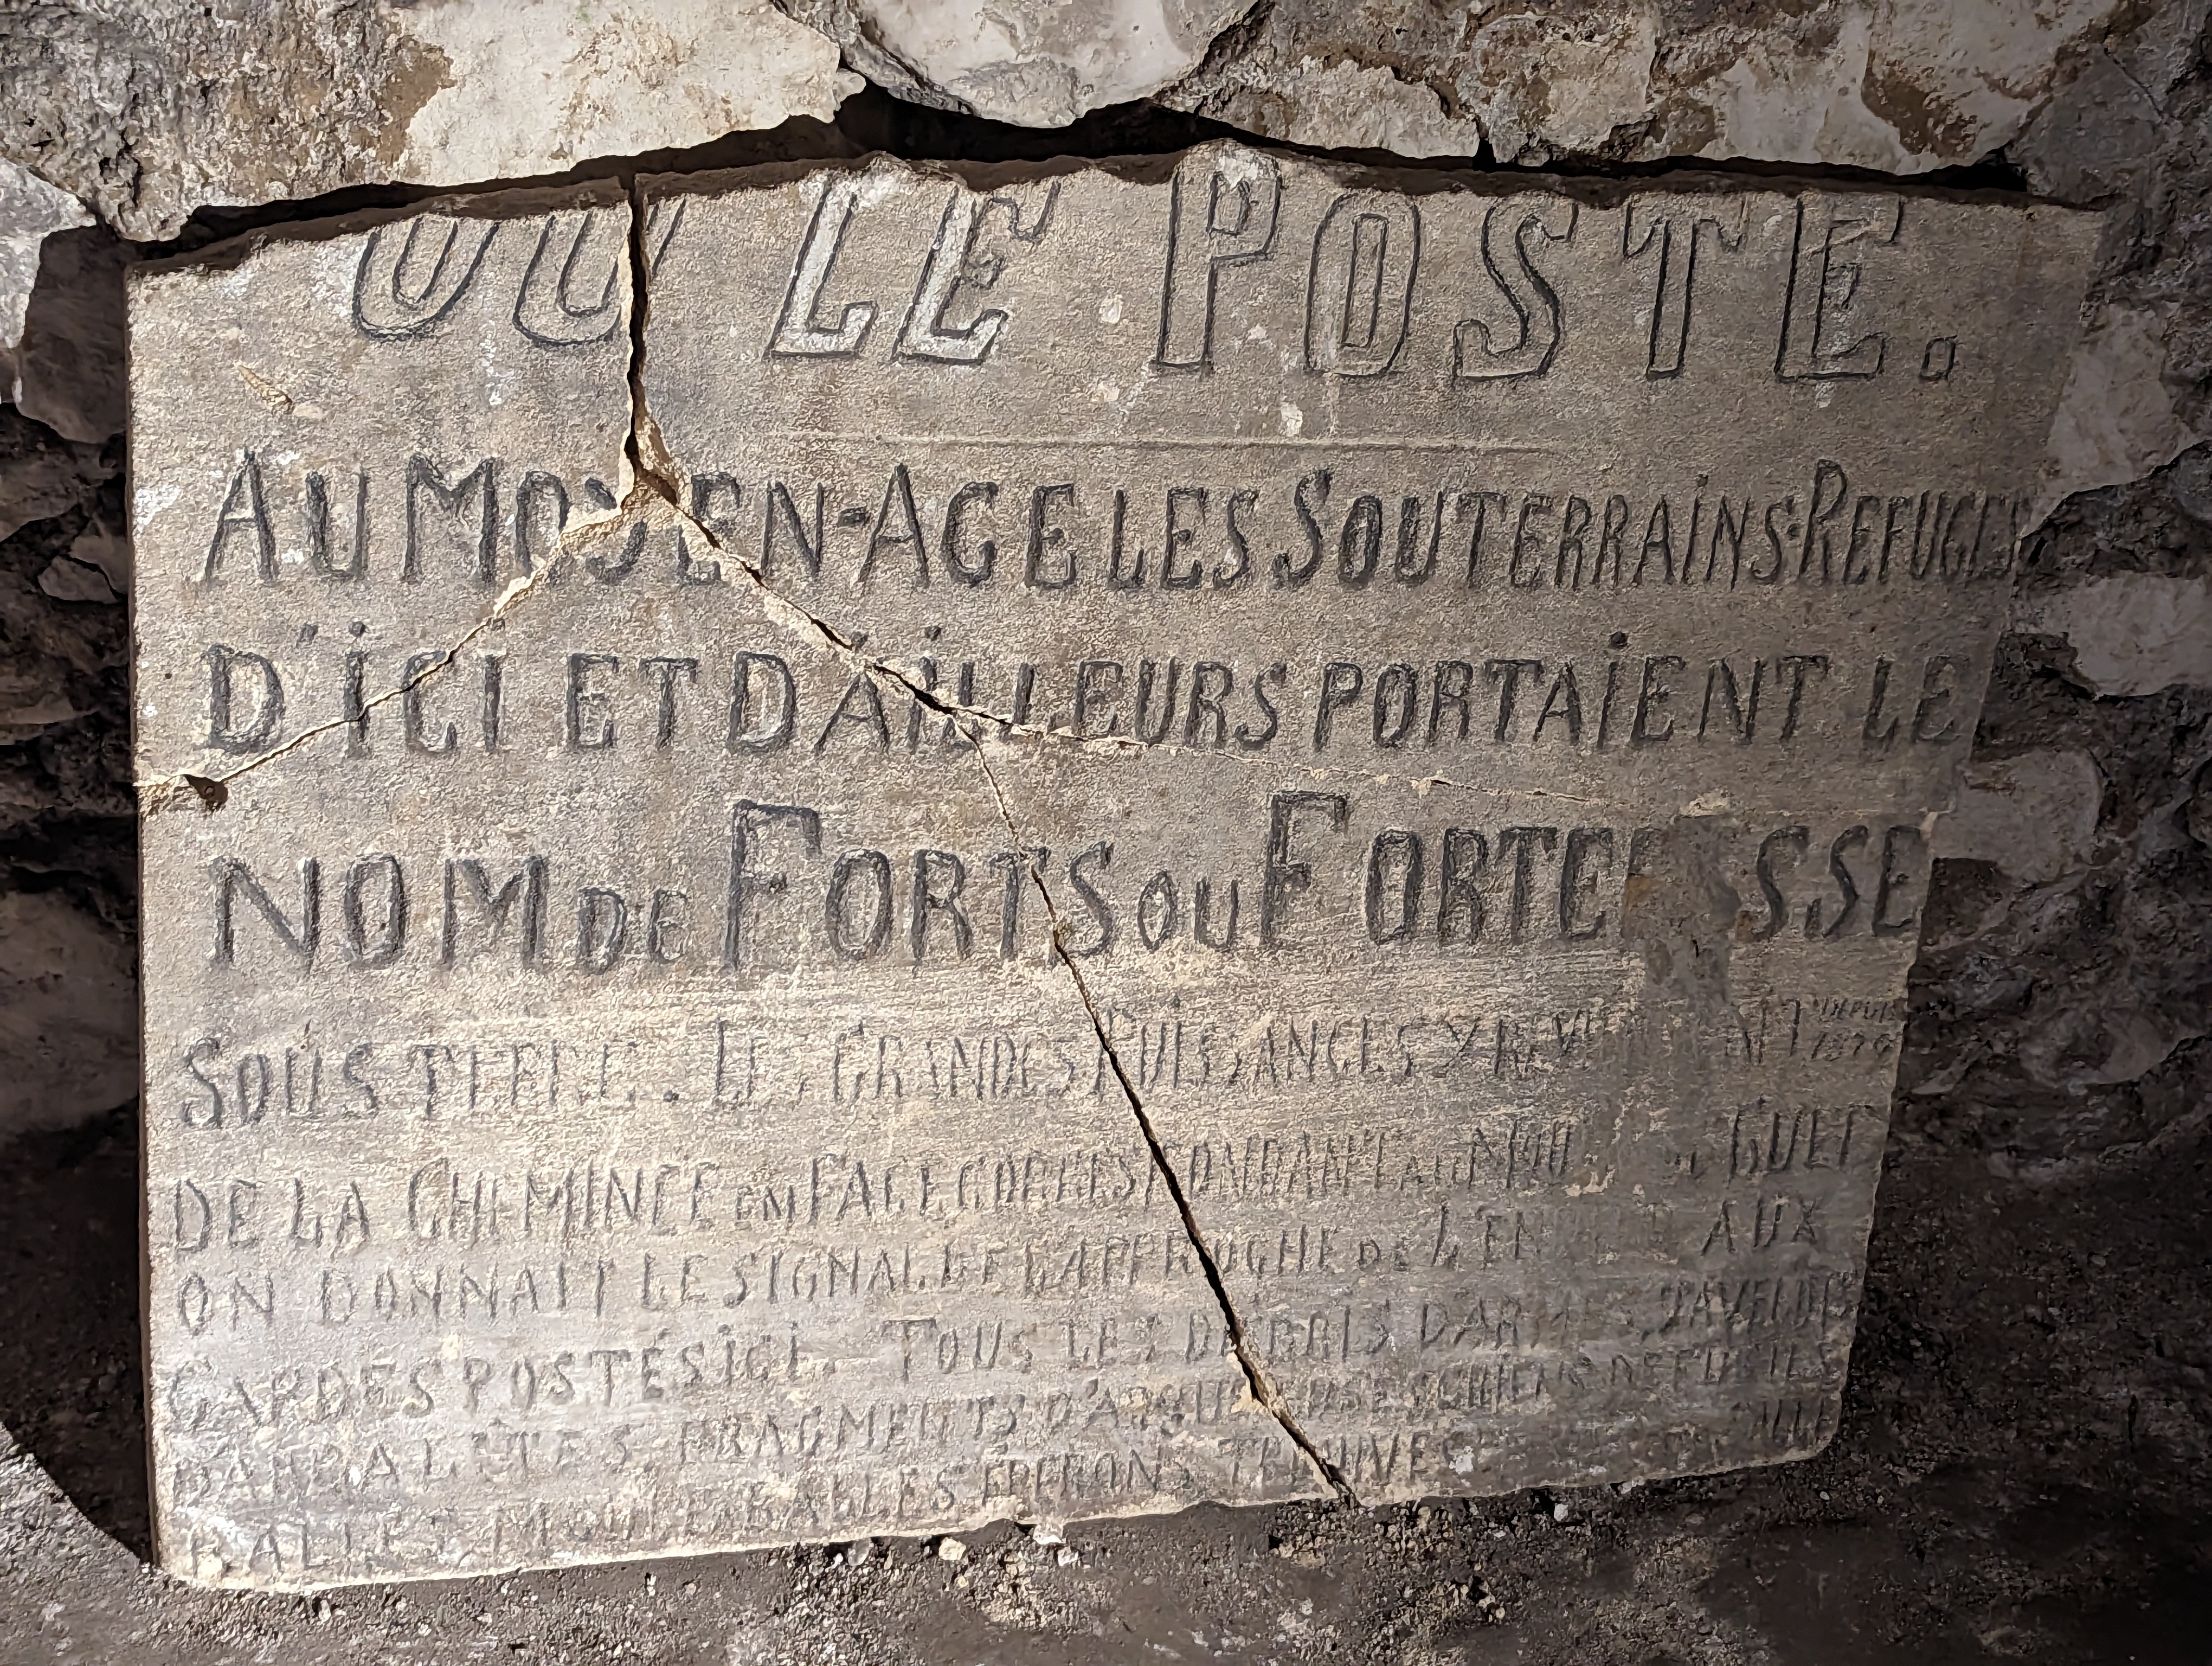 OU LE POSTE.
AU MOYEN-AGE LES SOUTERRAINS-REFUGES
D'ICI ET D'AILLEURS PORTAIENT LE
NOM DE FORTS OU FORTERESSE
SOUS TERRE. LES GRANDES PUISSANCES Y REVIENNENT DEPUIS 1870
DE LA CHEMINEE EN FACE CORRESPONDANT AU GUET
ON DONNAIT LE SIGNAL DE L'APPROCHE DE L'ENNEMI AUX
GARDES POSTÉS ICI. TOUS LES DEBRIS D'ARMES JAVELOTS
D'ARBALÈTES FRAGMENTS D'ARQUEBUSES
BALLES, MOULE BALLES EPERONS TROUVES